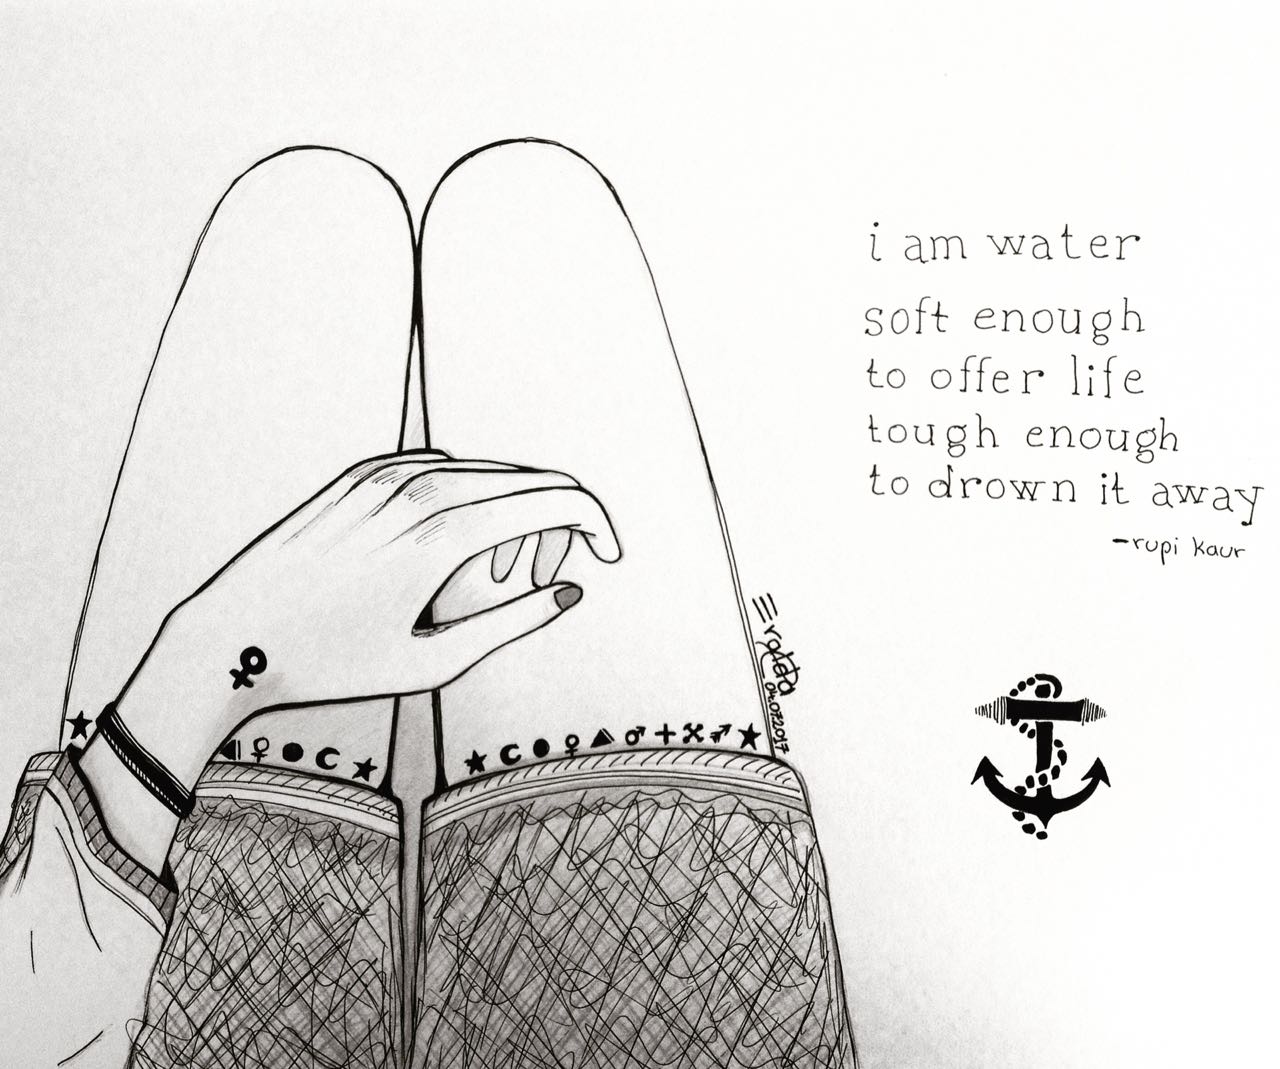 i am water
soft enough
to offer life
tough enough
to drown it away
-rupi kaur
04.072017